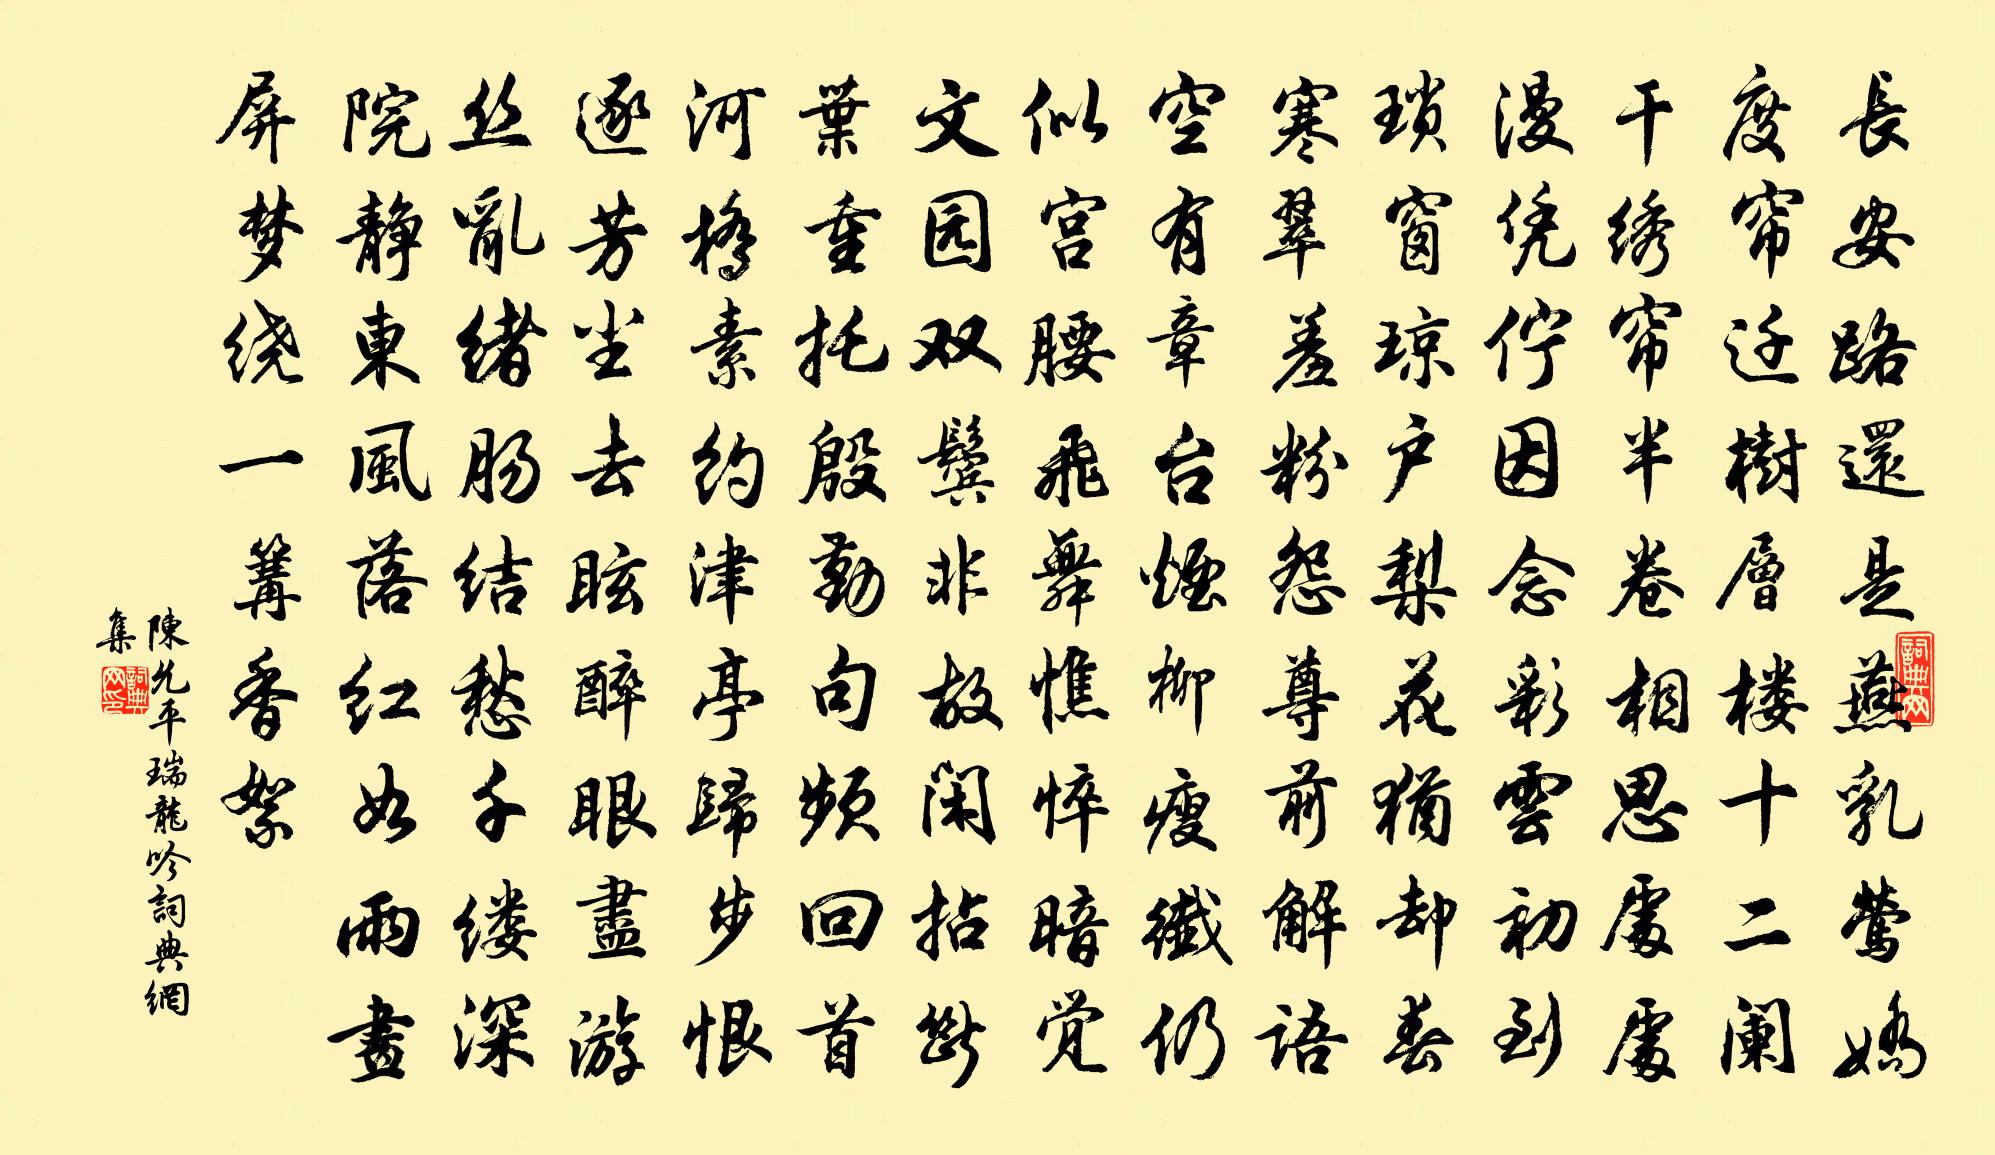 長安路還是燕乳莺嬌
度帘迁樹層楼十二阑
干绣帘半卷相思處處
漫凭佇因念彩雲初到
琐窗琼户梨花猶却春
寒翠羞粉怨尊前解語
空有章台煙柳瘦纖仍
似宫腰飛舞憔悴暗觉
文园双鬓非故闲拈断
葉重托殷勤句頻回首
河橋素约津亭歸步恨
逐芳尘去眩醉眼盡游
丝亂緒肠结愁千缕深
院静東風落红如雨畫
屏梦绕一篝香絮
陳允平瑞龍吟詞典網
集
詞典网
詞典网印